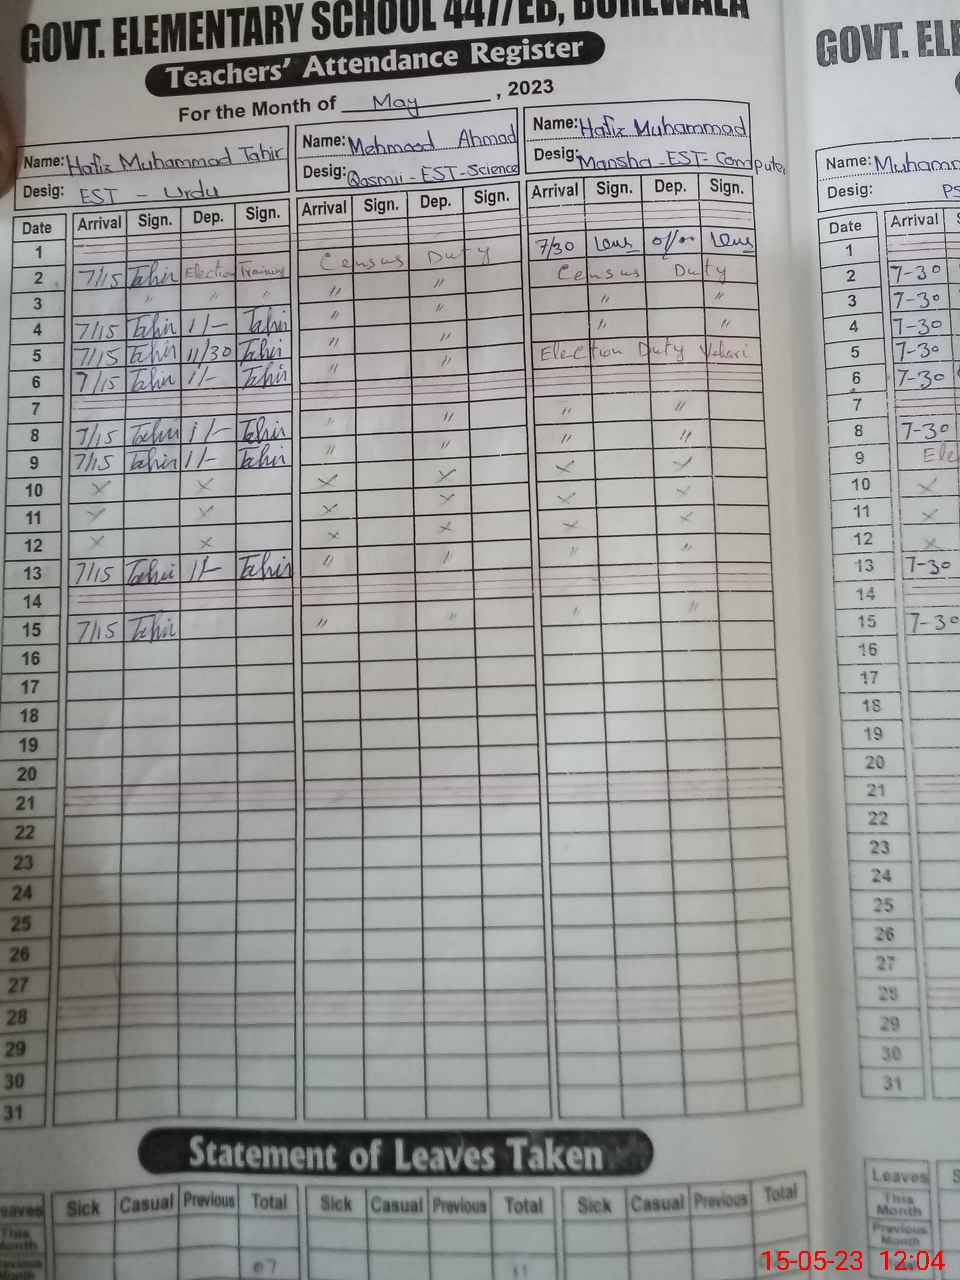 GOVT. ELEMENTARY SCHOOL 447/EB, BUREWALA
Teachers' Attendance Register
For the Month of May, 2023
Name: Hafiz Muhammad Tahir
Desig: EST - Urdu
Name: Mehmood Ahmad
Desig: Qasmii - EST - Science
Name: Hafiz Muhammad
Desig: Mansha - EST - Computer
Date Arrival Sign. Dep. Sign. Arrival Sign. Dep. Sign. Arrival Sign. Dep. Sign.
1 7/30
2 7/15 Tahir Election Training Census Duty Census Duty
3 " " " " " " "
4 7/15 Tahir 1/- Tahir " " " "
5 7/15 Tahir 11/30 Tahir " " Election Duty Vehari
6 7/15 Tahir 1/- Tahir " "
7
8 7/15 Tahir 1/- Tahir " " " "
9 7/15 Tahir 1/- Tahir " " " "
10 × × × × × ×
11 × × × × × ×
12 × × × × × ×
13 7/15 Tahir 1/- Tahir " " " "
14
15 7/15 Tahir " " " "
16
17
18
19
20
21
22
23
24
25
26
27
28
29
30
31
Statement of Leaves Taken
Leaves Sick Casual Previous Total Sick Casual Previous Total Sick Casual Previous Total
This Month
Previous Month 07 11
GOVT. ELE
Name: Muhamm
Desig: PS
Date Arrival S
1
2 7-30
3 7-30
4 7-30
5 7-30
6 7-30
7
8 7-30
9 Ele
10 ×
11 ×
12 ×
13 7-30
14
15 7-30
16
17
18
19
20
21
22
23
24
25
26
27
28
29
30
31
Leaves S
This Month
Previous Month
15-05-23 12:04